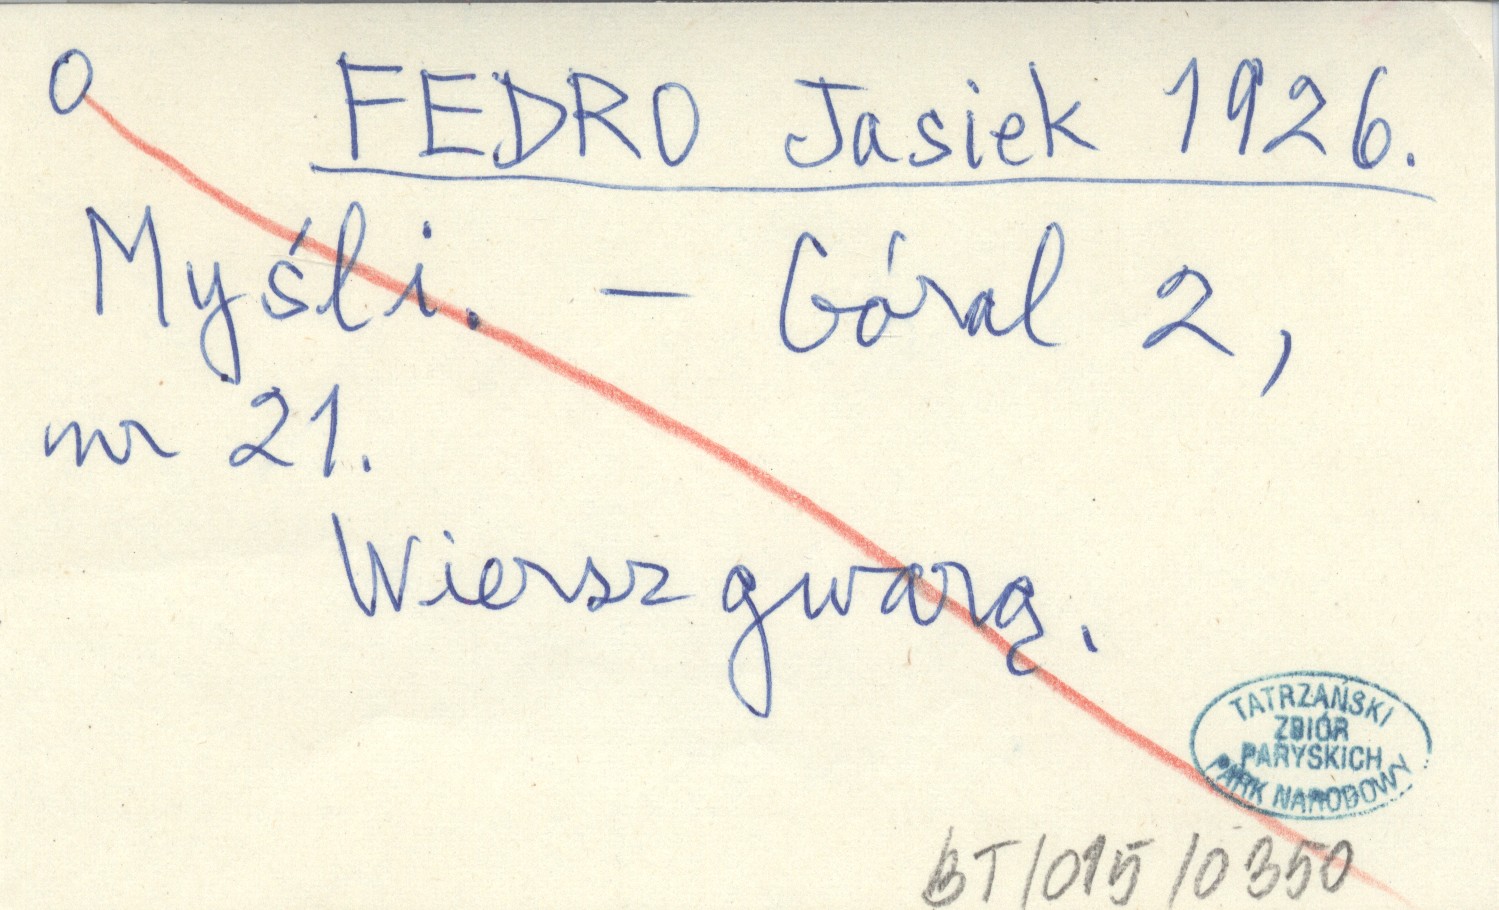 O FEDRO Jasiek 1926.
Myśli. — Góral 2,
nr 21.
Wiersz gwarą.
TATRZAŃSKI
ZBIÓR
PARYSKICH
PARK NARODOWY
BT/015/0350